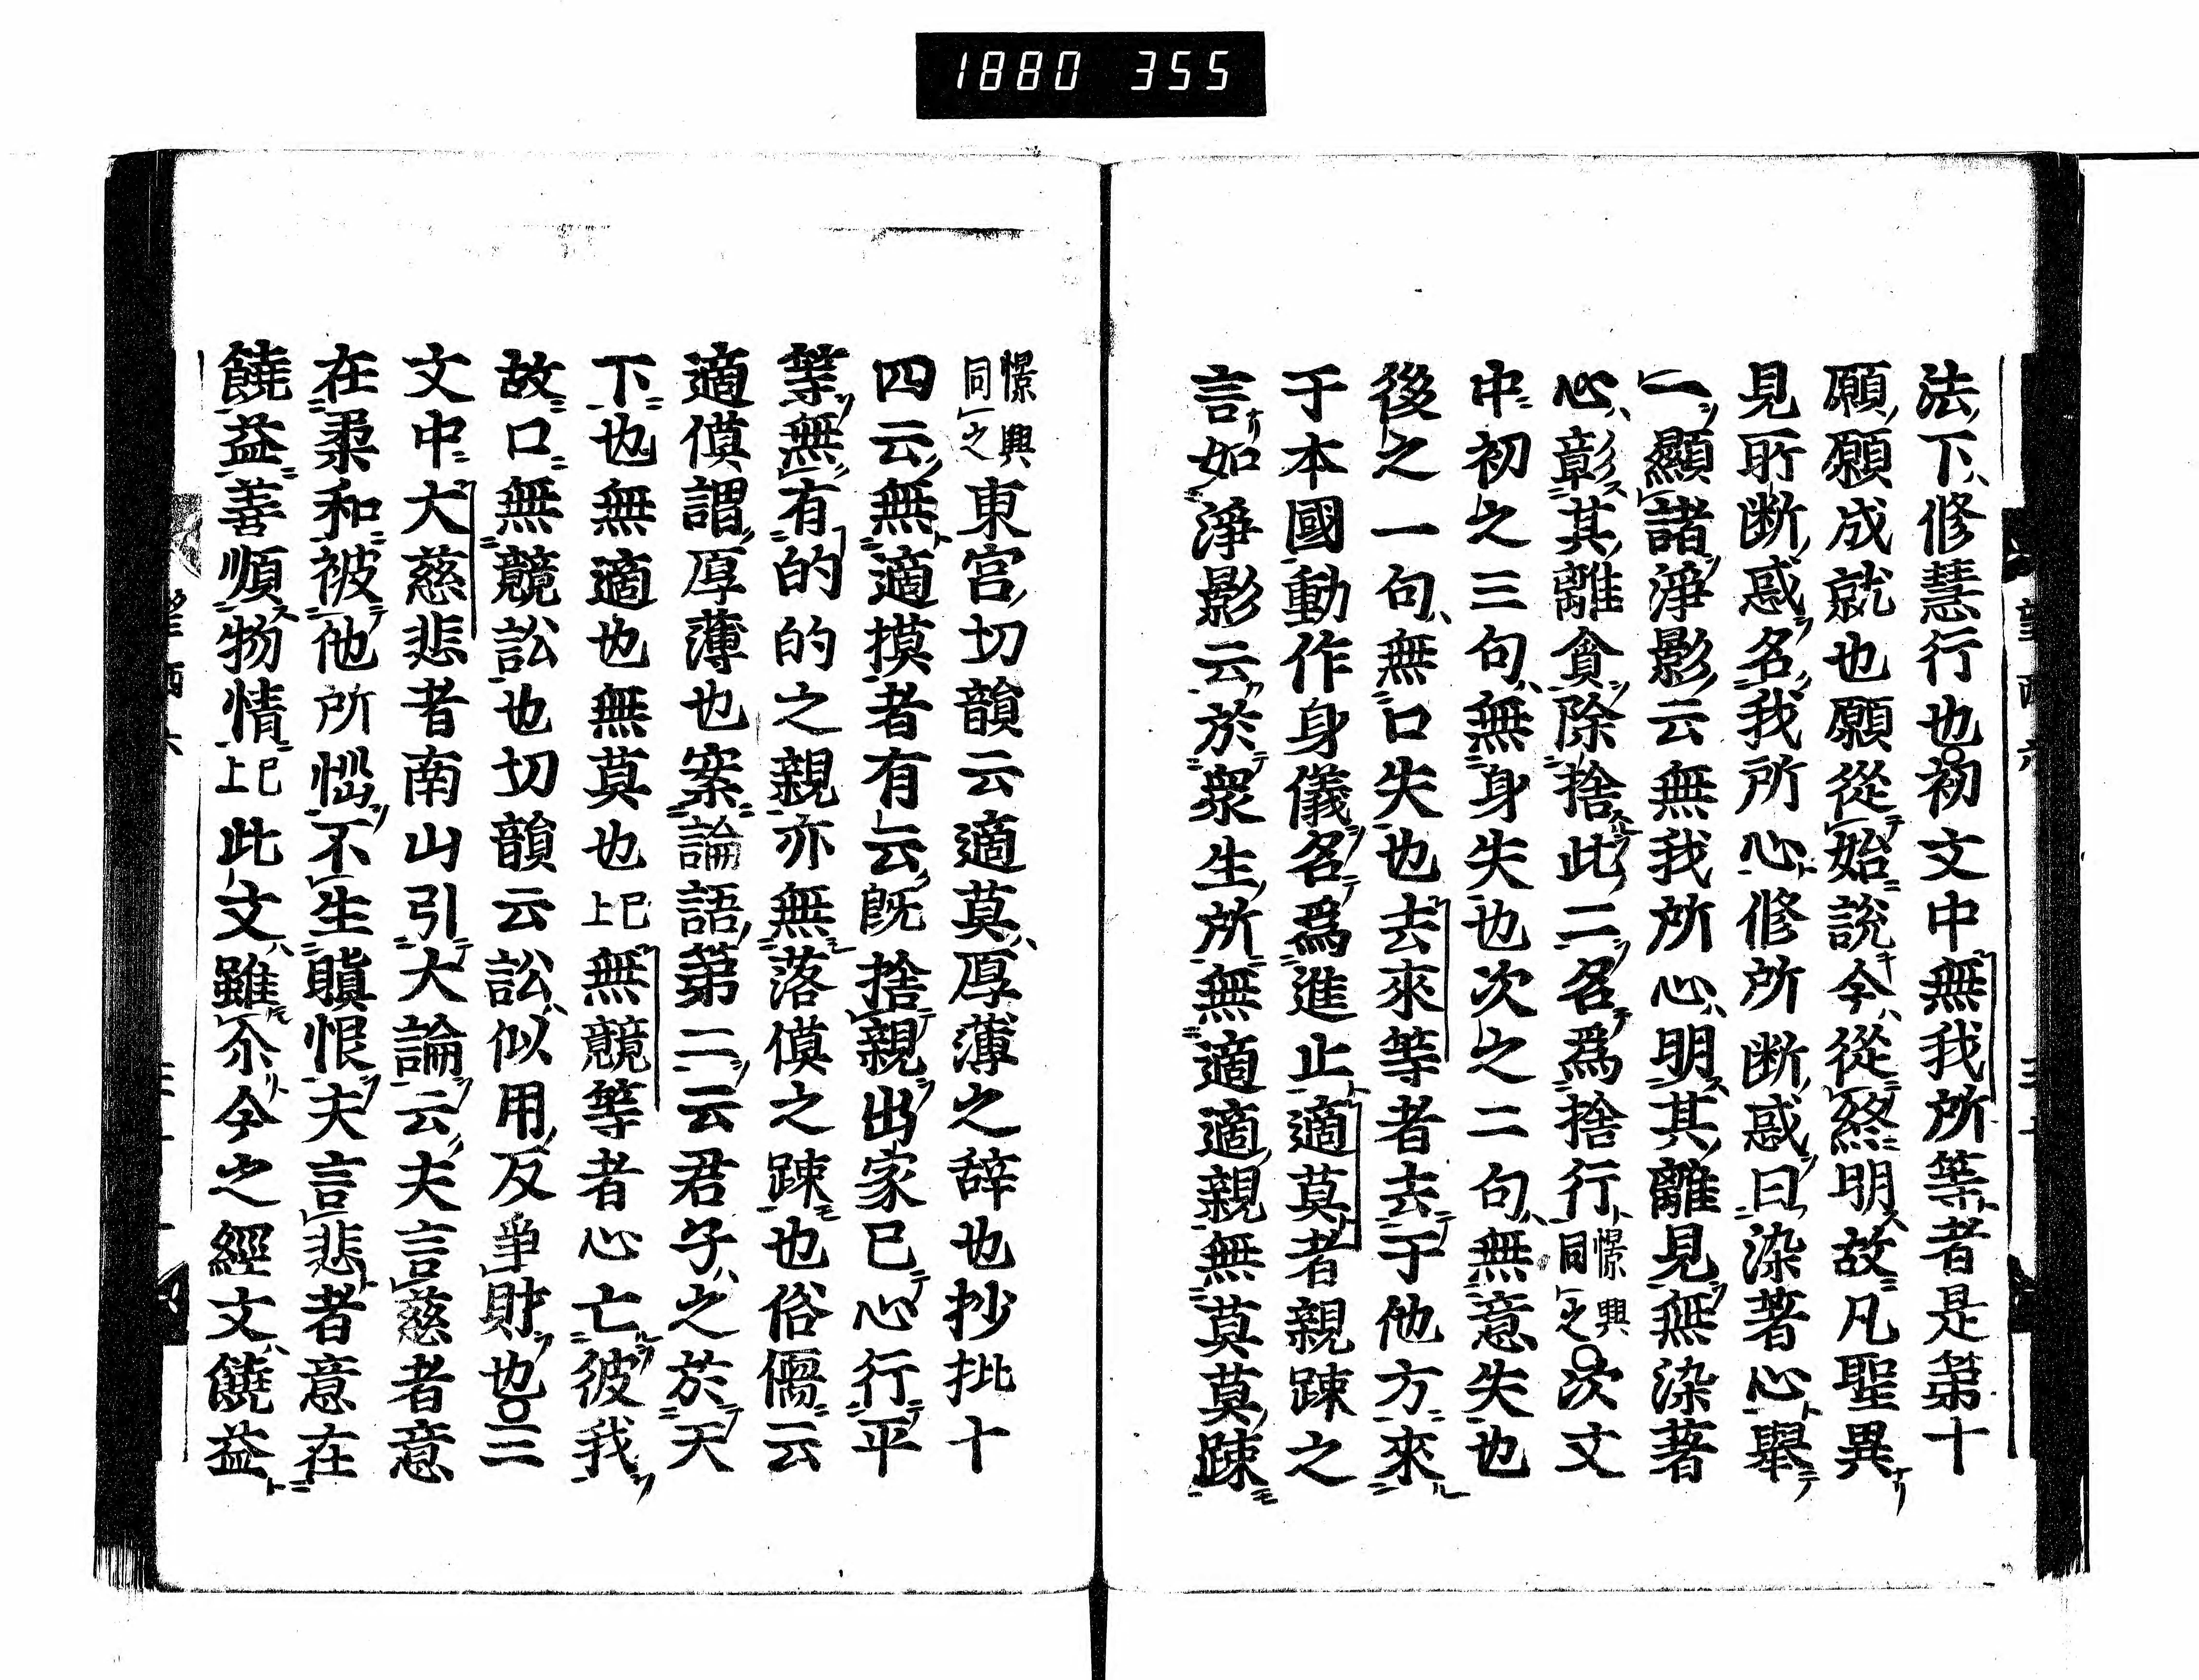 1880 355
法下修慧行也初文中無我所等者是第十
願願成就也願從始說今從終明故凡聖異
見所断惑名我所心修所断惑曰染著心舉
一顯諸淨影云無我所心明其離見無染著
心彰其離貪除捨此二名爲捨行憬興同之次文
中初之三句無身失也次之二句無意失也
後之一句無口失也去來等者去于他方來
于本國動作身儀名爲進止適莫者親踈之
言如淨影云於衆生所無適適親無莫莫踈
憬興同之東宮切韻云適莫厚薄之辞也抄批十
四云無適摸者有云既捨親出家已心行平
等無有的的之親亦無落僙之踈也俗儒云
適僙謂厚薄也案論語第二云君子之於天
下也無適也無莫也已上無競等者心亡彼我
故口無競訟也切韻云訟似用反爭財也三
文中大慈悲者南山引大論云夫言慈者意
在柔和被他所惱不生瞋恨夫言悲者意在
饒益善順物情已上此文雖尒今之經文饒益